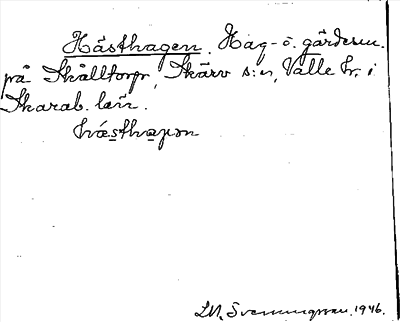 Hästhagen. Hag- o. gärdesn.
på Skålltorp, Skärv s:n, Valle hr. i
Skarab. län.
hæ̀sthagən
LM. Svenungsson. 1946.